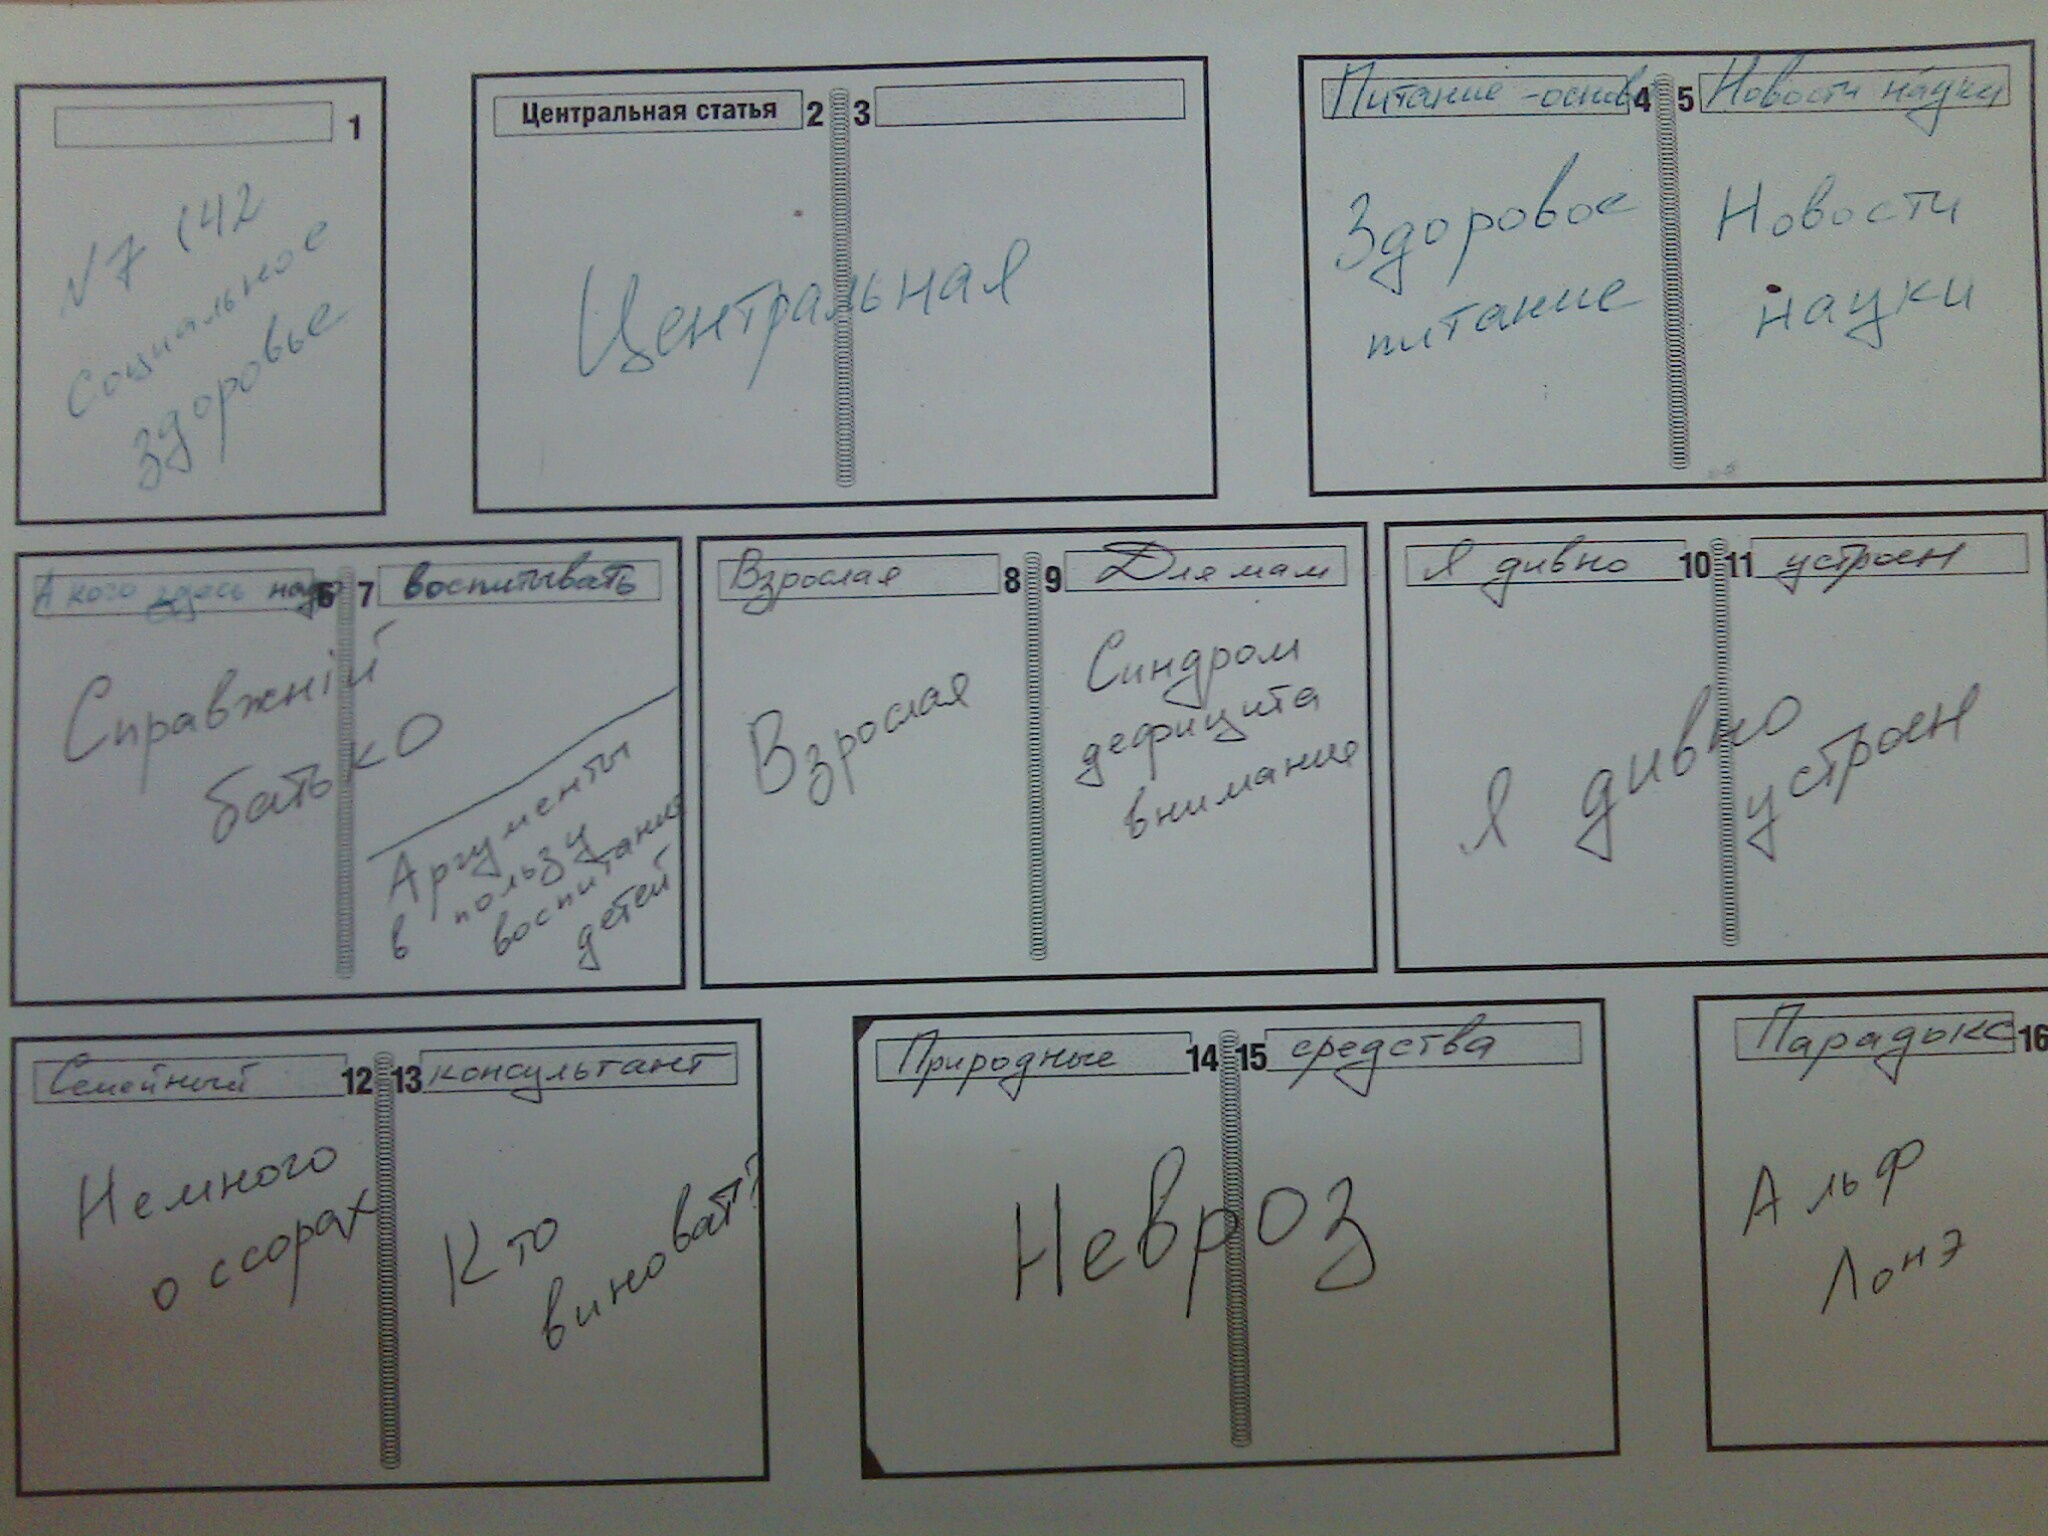 1
№7 (42
Социальное
здоровье
Центральная статья 2 3
Центральная
Питание - основа 4 5 Новости науки
Здоровое
питание
Новости
науки
А кого здесь надо 6 7 воспитывать
Справжній
батько
Аргументы
в пользу
воспитания
детей
Взрослая 8 9 Для мам
Взрослая
Синдром
дефицита
внимания
Я дивно 10 11 устроен
Я дивно устроен
Семейный 12 13 консультант
Немного
о ссорах
Кто
виноват?
Природные 14 15 средства
Невроз
Парадокс 16
Альф
Лонэ